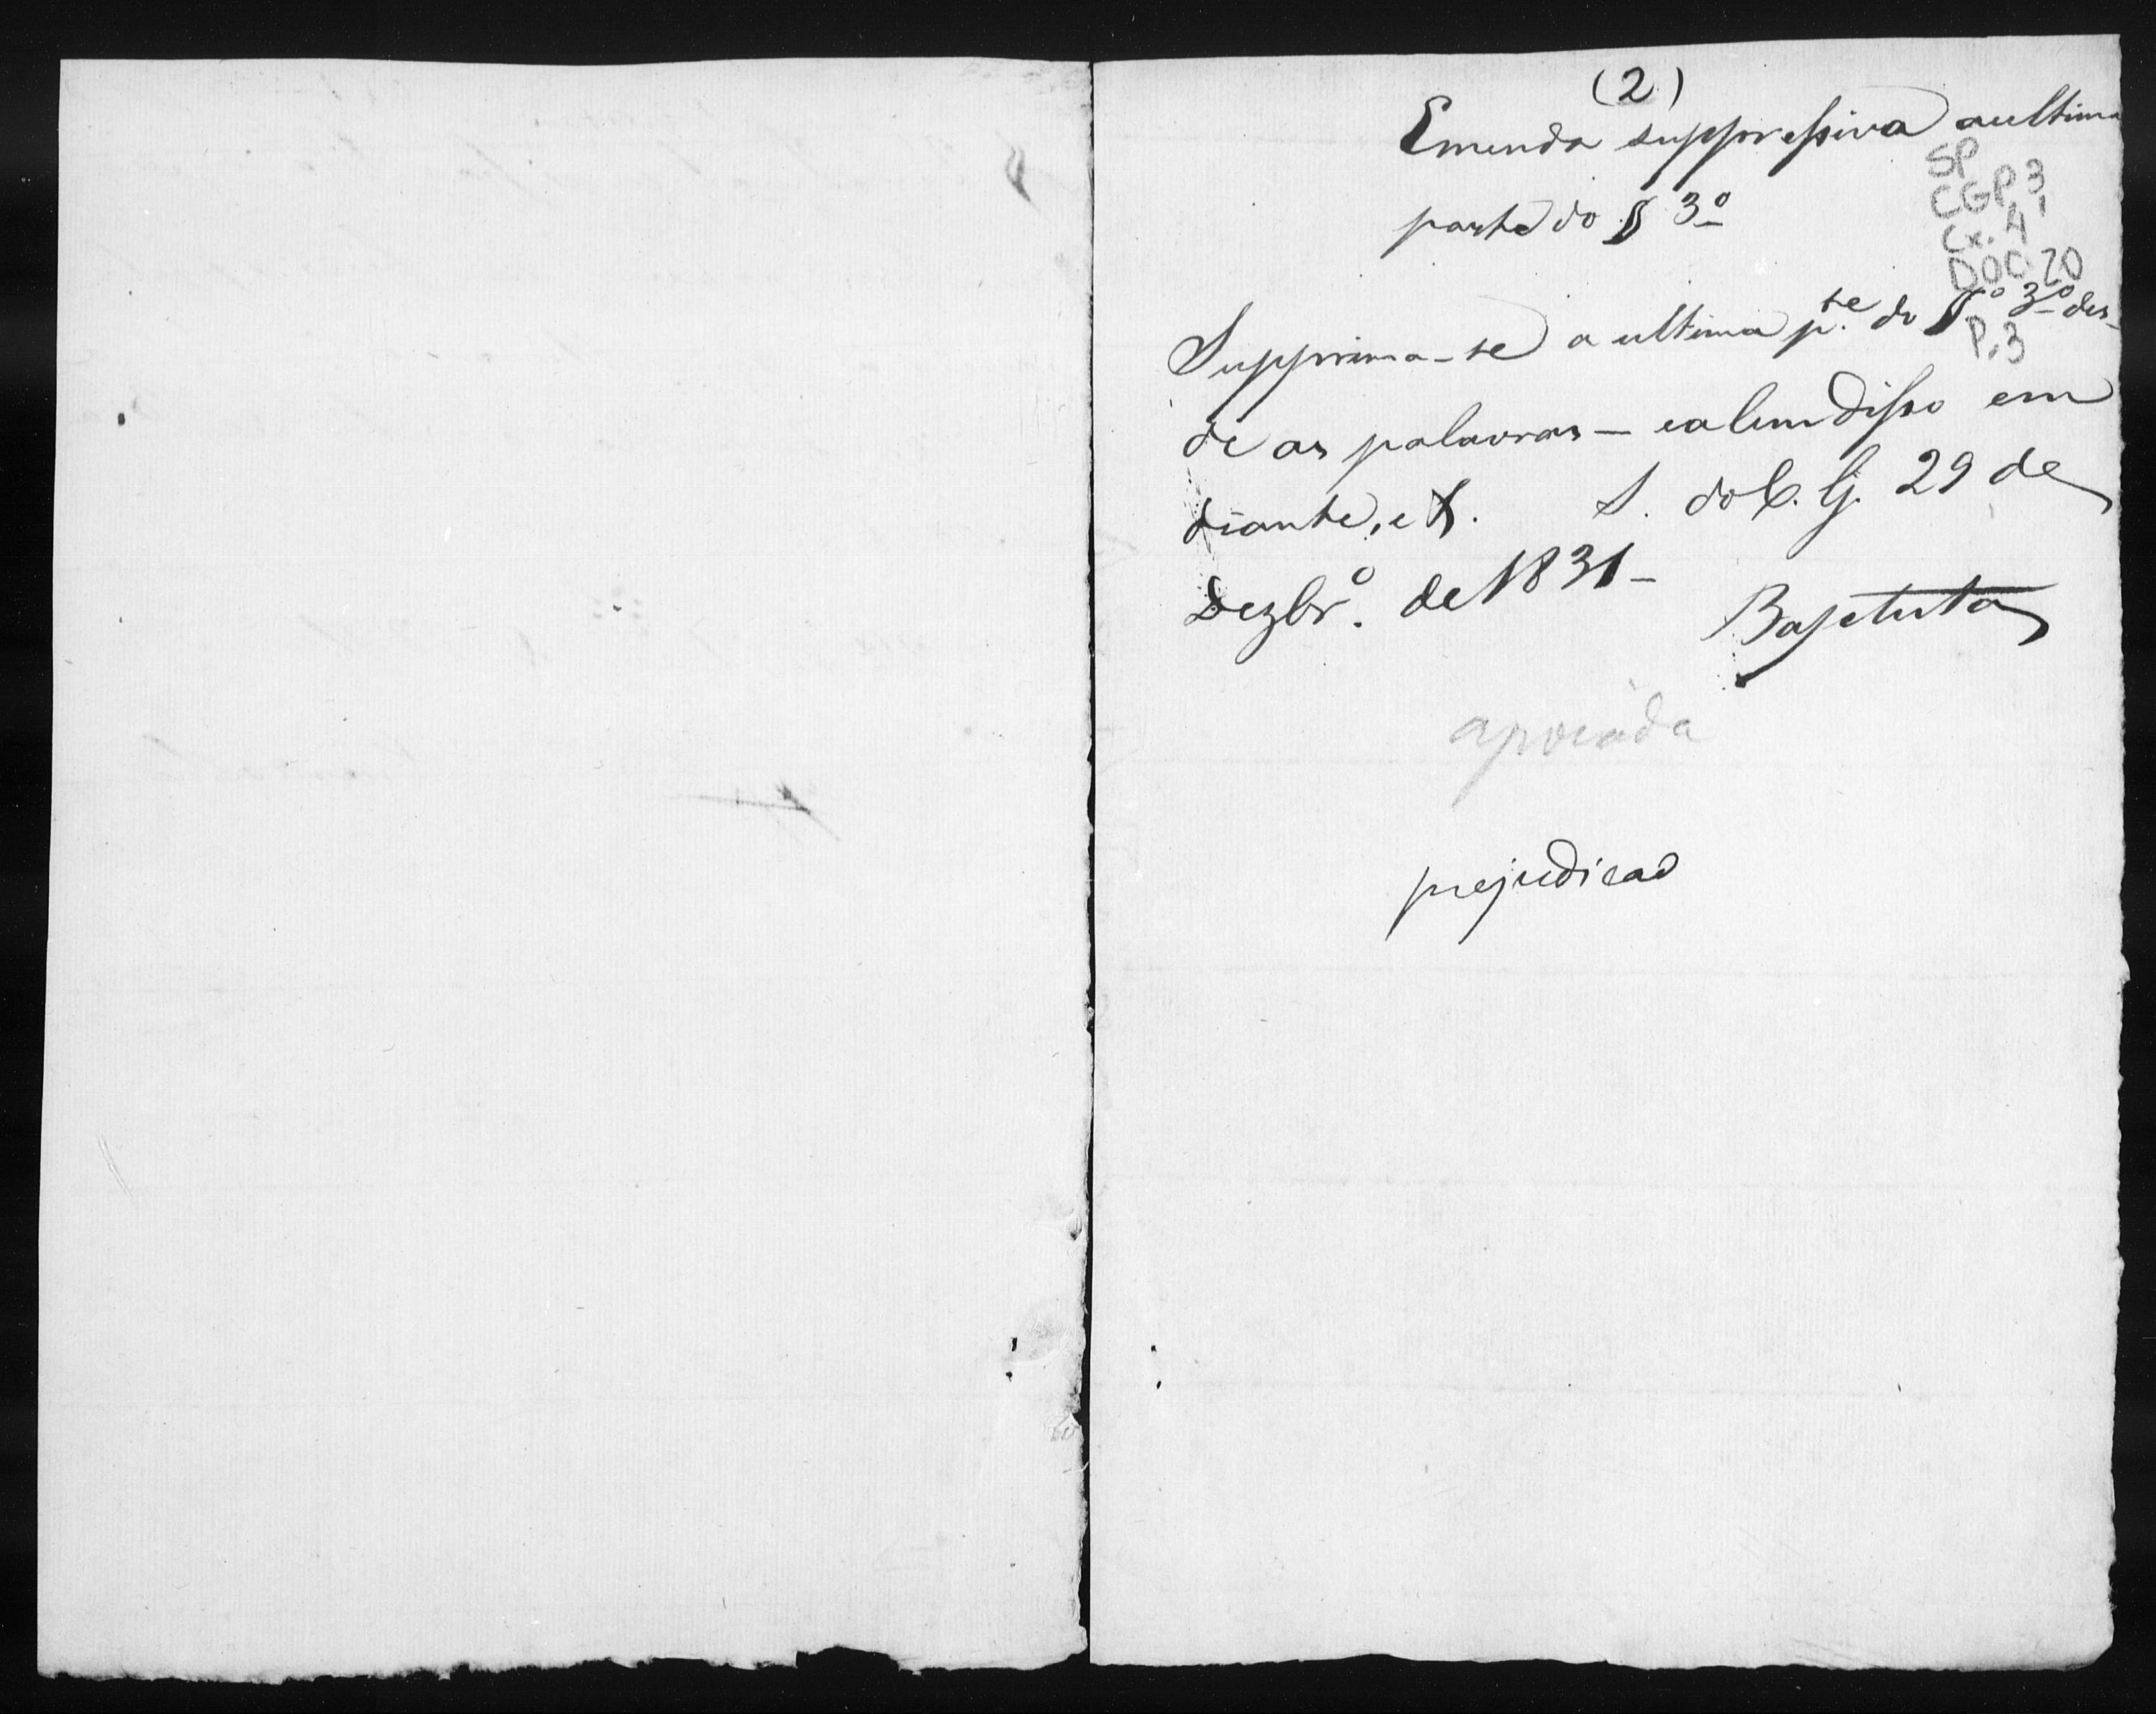 (2)
Emenda suppressiva a ultima
parte do § 3º
SP
CGP 3,
Cx. 4
DOC 20
P.3
Supprima-se a ultima p.te do §º 3º des-
de as palavras — e alem disso em
diante, et
S. do C. G. 29 de
Dezbrº. de 1831 —
Baptista
apoiada
prejudicad